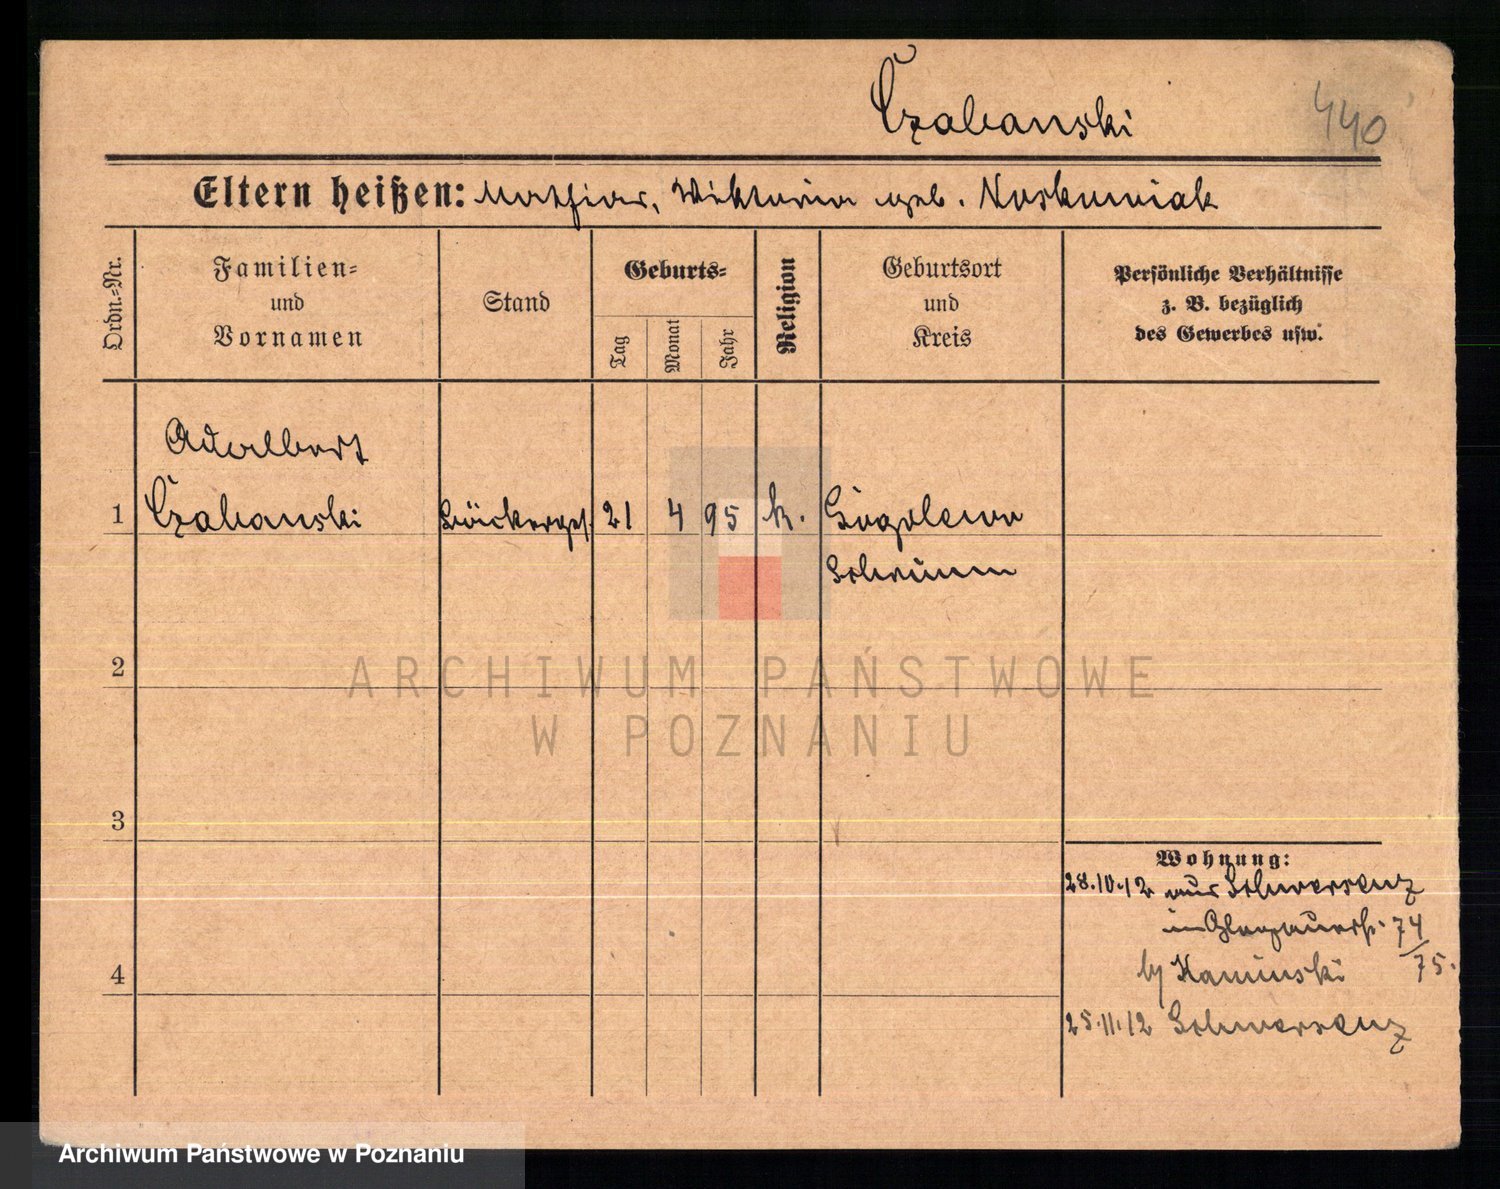 Czabanski
440
Eltern heißen: Mathias, Wiktoria geb. Noskowiak
Ordn.=Nr.
Familien=
und
Vornamen
Stand
Geburts=
Tag
Monat
Jahr
Religion
Geburtsort
und
Kreis
Persönliche Verhältnisse
z. B. bezüglich
des Gewerbes usw.
Adalbert
1 Czabanski Bäckerges. 21 4 95 k. Gogolewo
Schrimm
2
3
4
Wohnung:
28.10.12 aus Schwersenz
in 74
by Kaminski 75.
25.11.12 Schwersenz
ARCHIWUM PAŃSTWOWE
W POZNANIU
Archiwum Państwowe w Poznaniu